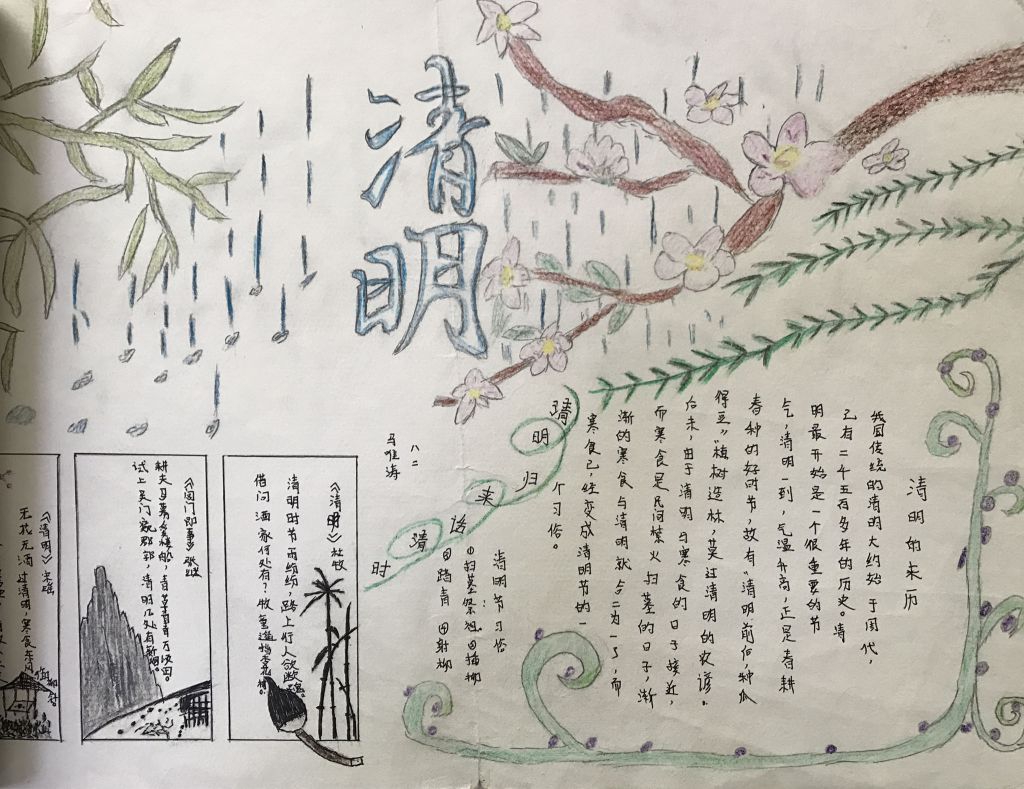 清明
清明的来历
我国传统的清明大约始于周代，
已有二千五百多年的历史。清
明最开始是一个很重要的节
气，清明一到，气温升高，正是春耕
春种的好时节，故有，清明前后，种瓜
得豆""植树造林，莫过清明的农谚。
后来，由于清明与寒食的日子接近，
而寒食是民间禁火扫墓的日子，渐
渐的寒食与清明就合二为一了，而
寒食已，经变成清明节的一
个习俗。
清明归来话清时
清明节习俗：
①扫墓祭祖②插柳
③踏青④射柳
八二
《清明》杜牧
清明时节雨纷纷，路上行人欲断魂。
借问酒家何处有？牧童遥指杏花村。
《阊门即事》张继
耕夫召募爱楼船，春草青青万项田。
试上吴门窥郡郭，清明几处有新烟。
《清明》
无花无酒过清明，寒食东风
御柳斜